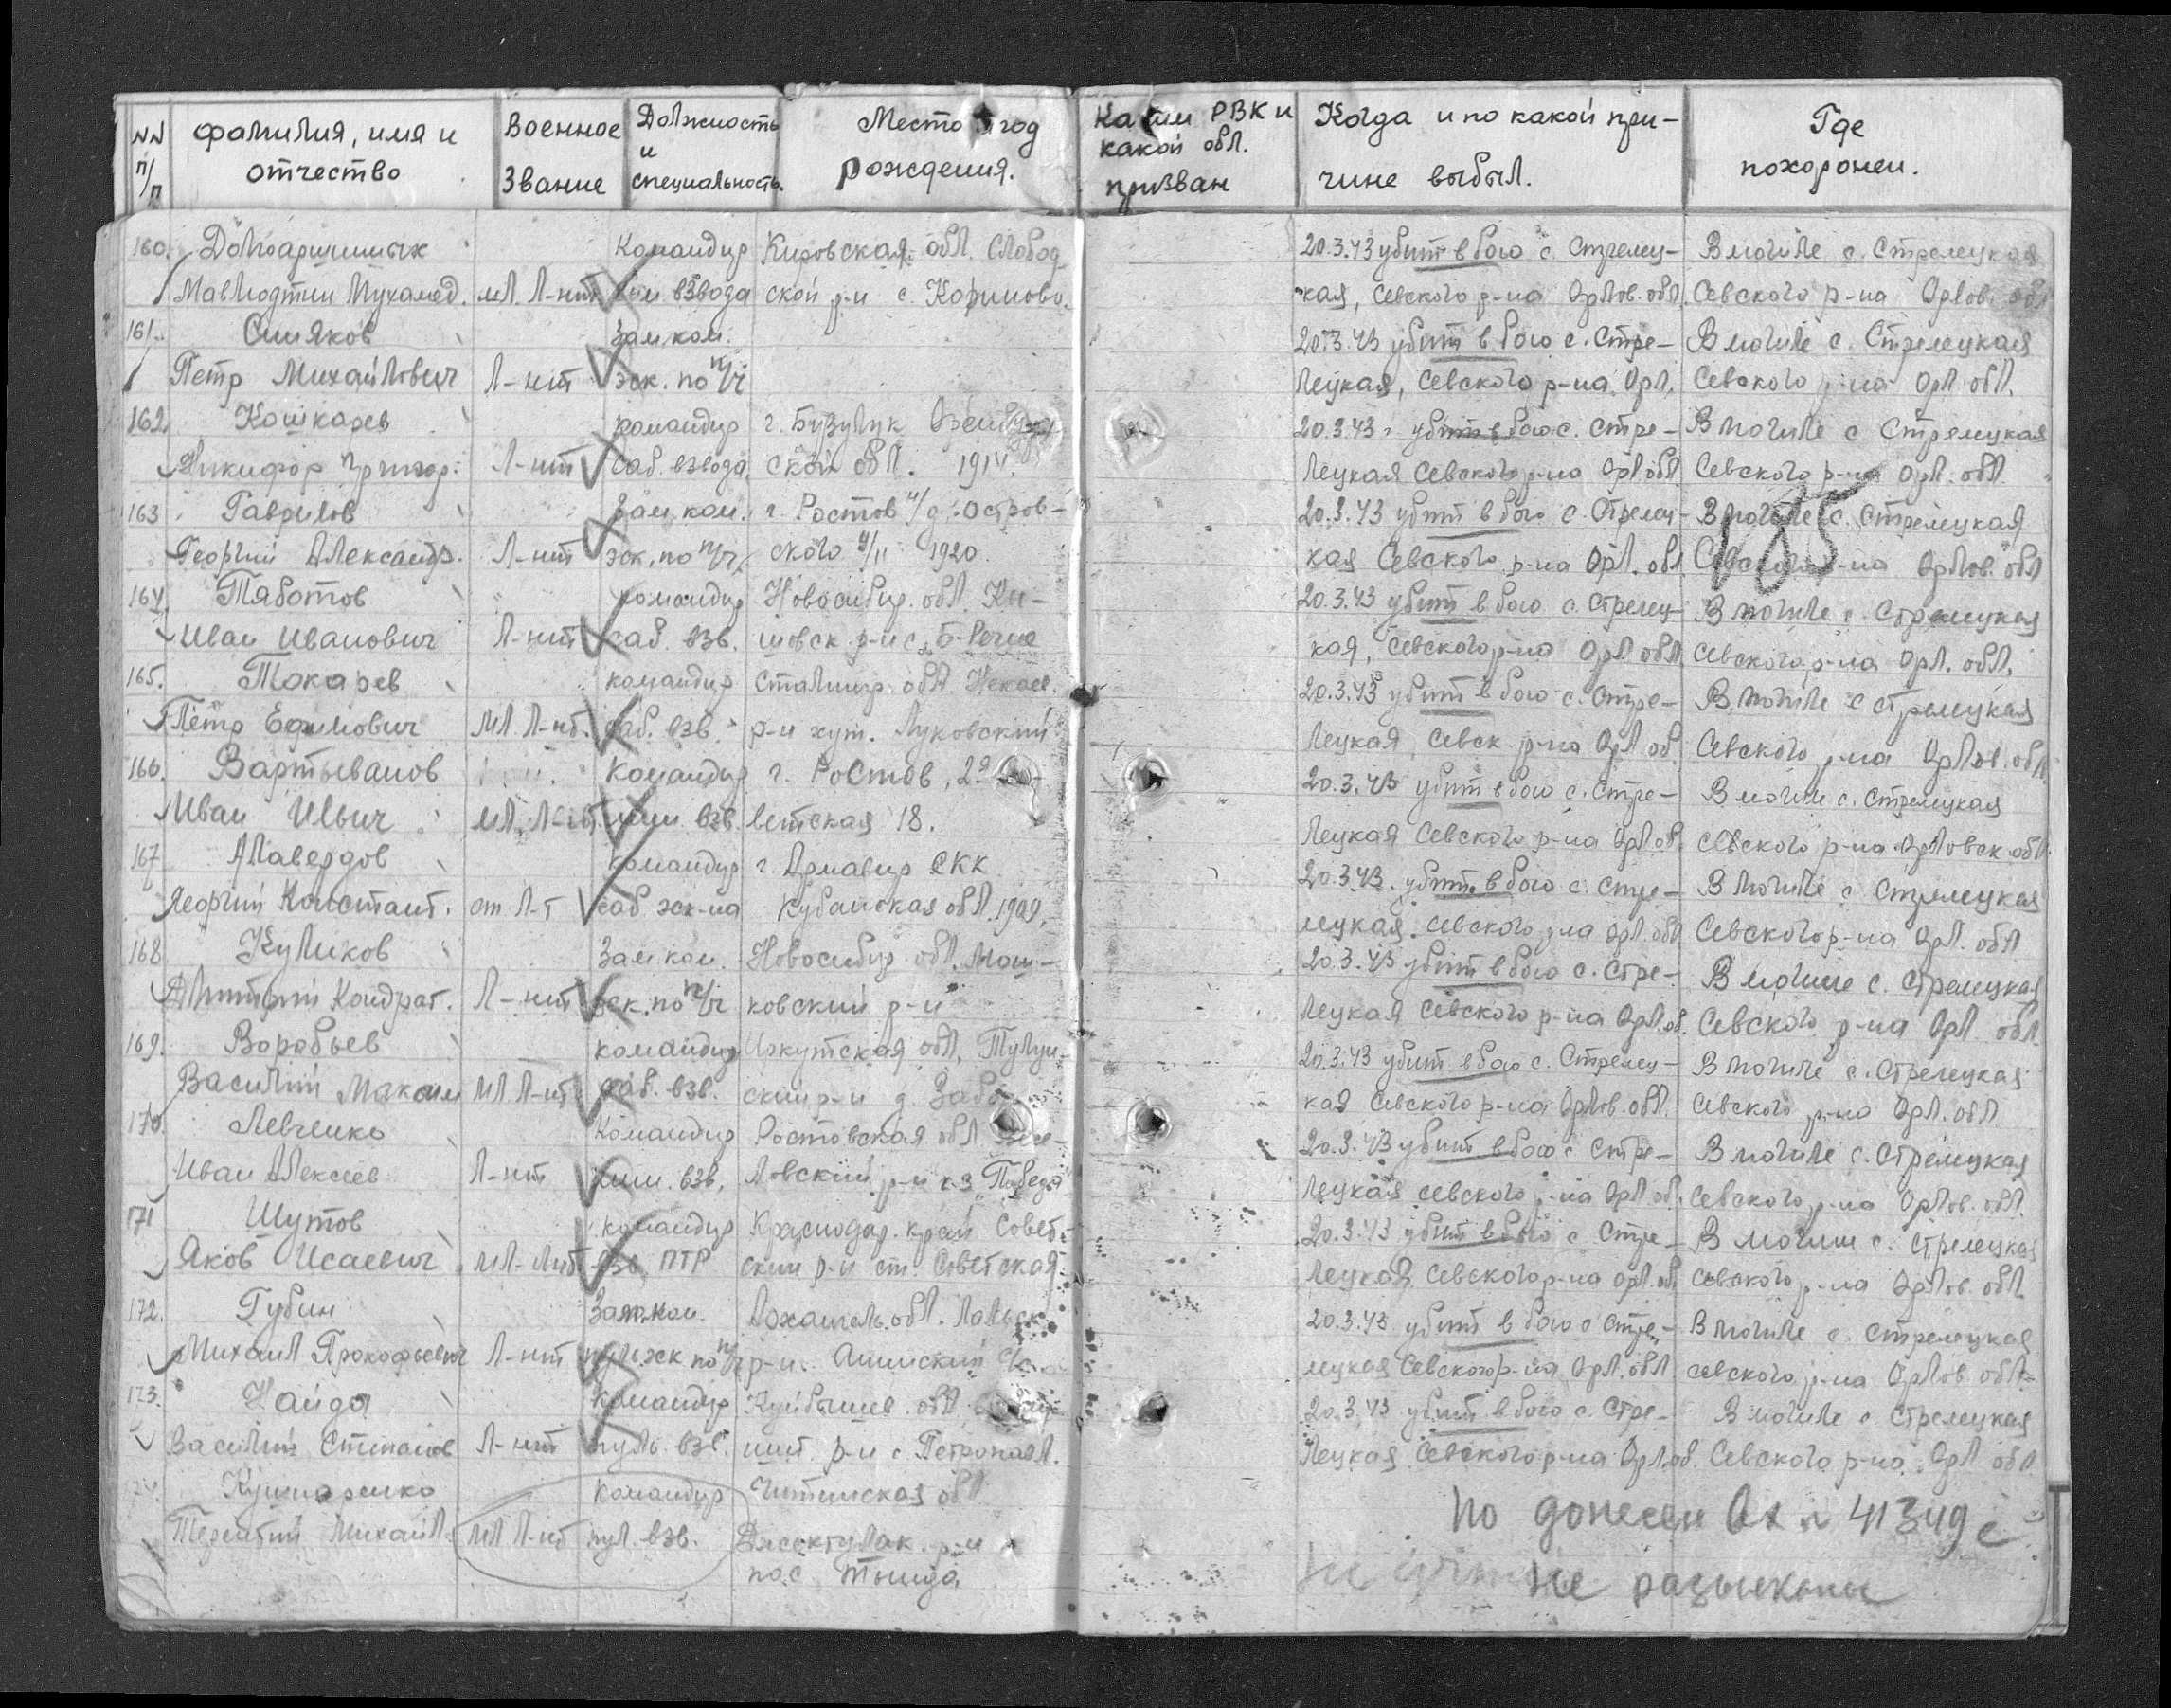 №№ п/п
Фамилия, имя и отчество
Военное Звание
Должность и специальность
Место и год рождения.
Каким РВК и какой обл. призван
Когда и по какой при-
чине выбыл.
Где похоронен.
160. командир Кировская обл. Слобод 20.3.43 убит в бою с. Стрелец- В могиле с. Стрелецкая
Мавлюдтин Мухамед. мл. л-нт взвода ской р-н с. кая, Севского р-на Орлов. обл. Севского р-на Орлов. обл
161. Синяков Зам ком. 20.3.43 убит в бою с. Стре- В могиле с. Стрелецкая
Петр Михайлович Л-нт эск. по п/ч лецкая, Севского р-на Орл. Севского р-на Орл обл.
162. Кошкарев командир г. Бузулук 20.3.43 убит в бою с. Стре- В могиле с Стрелецкая
Никифор Григор. Л-нт саб. взвода ской обл. 1914. лецкая Севского р-на Орл обл Севского р-на Орл. обл.
163 Гаврилов Зам. ком. г. Ростов н/д Остров- 20.3.43 убит в бою с. Стрелец- В могиле с. Стрелецкая
Георгий Александр. Л-нт эск. по п/ч ского 1920. кая Севского р-на Орл. обл Севского р-на Орлов. обл
185
164. Тяботов командир Новосибир. обл. Ки- 20.3.43 убит в бою с. Стрелец- В могиле с. Стрелецкая
Иван Иванович Л-нт саб. взв. шовск р-н с. кая, Севского р-на Орл обл. Севского р-на Орл. обл.
165. Токарев командир Сталингр. обл. Нехаев. 20.3.43 убит в бою с. Стре- В могиле с Стрелецкая
Петр Ефимович мл. л-нт. саб. взв. р-н хут. Луковский лецкая, Севск р-на Орл об. Севского р-на Орлов. обл.
166. Вартыванов командир г. Ростов, 20.3.43 убит в бою с. Стре- В могиле с. Стрелецкая
Иван Ильич мл. л-нт мин. взв. ветская 18. лецкая Севского р-на Орл об. Севского р-на Орловск. обл.
167 Алавердов командир г. Армавир СКК 20.3.43. убит в бою с. Стре- В могиле с Стрелецкая
Георгий Констант. ст л-т саб эск-на Кубанская обл. 1909. лецкая. Севского р-на Орл. обл Севского р-на Орл. обл
168. Куликов Зам ком. Новосибир. обл. Мош- 20.3.43 убит в бою с. Стре- В могиле с. Стрелецкая
Дмитрий Кондрат. Л-нт эск. по п/ч ковский р-н лецкая Севского р-на Орл об. Севского р-на Орл обл.
169. Воробьев командир Иркутская обл. Тулун- 20.3.43 убит в бою с. Стрелец- В могиле с. Стрелецкая
Василий Максим мл л-нт саб. взв. ский р-н д. кая Севского р-на Орлов. обл. Севского р-на Орл. обл
170. Левченко командир Ростовская обл. Весе- 20.3.43 убит в бою с Стре- В могиле с. Стрелецкая
Иван Алексеев Л-нт мин. взв. ловский р-н к-з "Победа" лецкая Севского р-на Орл об. Севского р-на Орлов. обл.
171 Шутов командир Краснодар. край Совет- 20.3.43 убит в бою с Стре- В могиле с. Стрелецкая
Яков Исаевич мл. л-нт взв ПТР ский р-н ст. Советская лецкая Севского р-на Орл. обл Севского р-на Орлов обл.
172. Губин Зам. ком. Архангель. обл. Лальск 20.3.43 убит в бою с Стре- В могиле с. Стрелецкая
Михаил Прокофьевич Л-нт пул. эск по п/ч р-н. лецкая Севского р-на Орл. обл Севского р-на Орлов обл.
173. Найда командир Куйбышев. обл. 20.3.43 убит в бою с. Стре- В могиле с. Стрелецкая
Василий Степанов Л-нт пуль. взв. р-н с Петропавл. лецкая Севского р-на Орл. об. Севского р-на Орл обл.
Кушнаренко командир Читинская обл
Терентий Михайл. мл л-нт пул. взв. Джектулак. р-н
пос. Тында
по донесен Вх № 41349 с
не разысканы